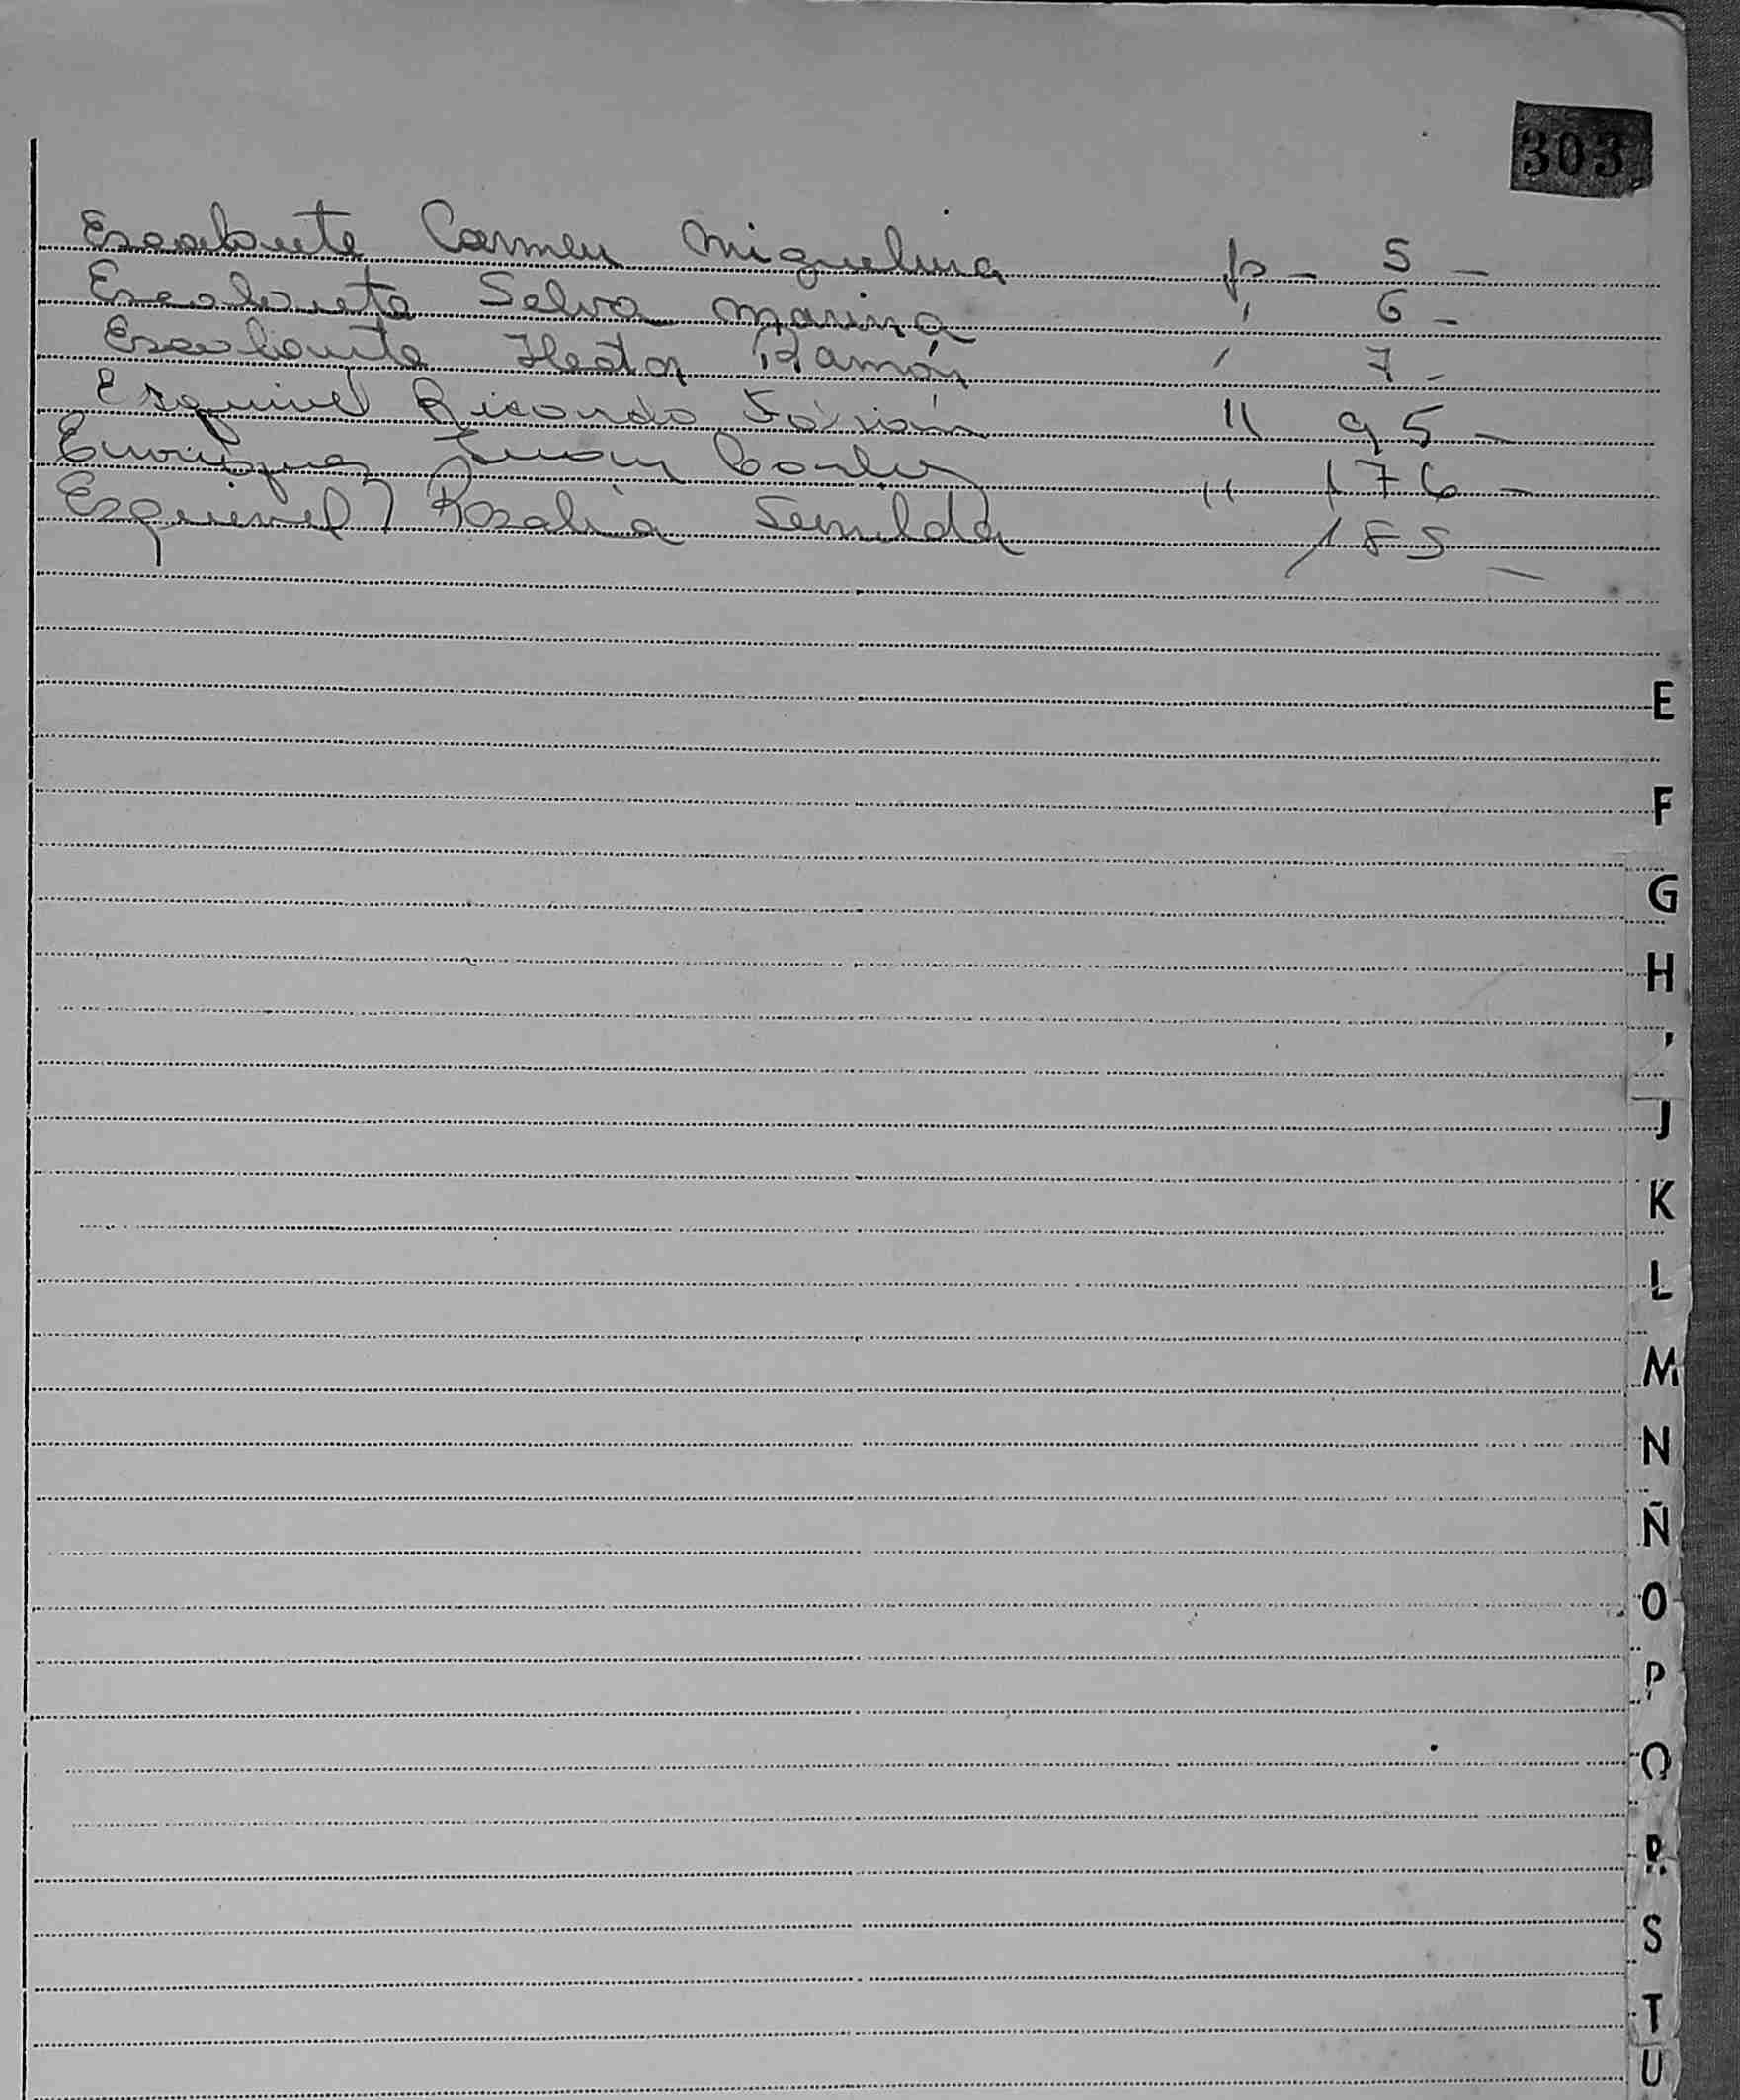 303
Escalante Carmen Miguelina p - 5 -
Escalante Selva Marina " 6 -
Escalante Hector Ramón " 7 -
Esquivel Ricardo Fabián " 95 -
Enriquez Juan Carlos " 176 -
Esquivel Rosalia 185 -
E
F
G
H
J
K
L
M
N
Ñ
O
P
Q
R
S
T
U